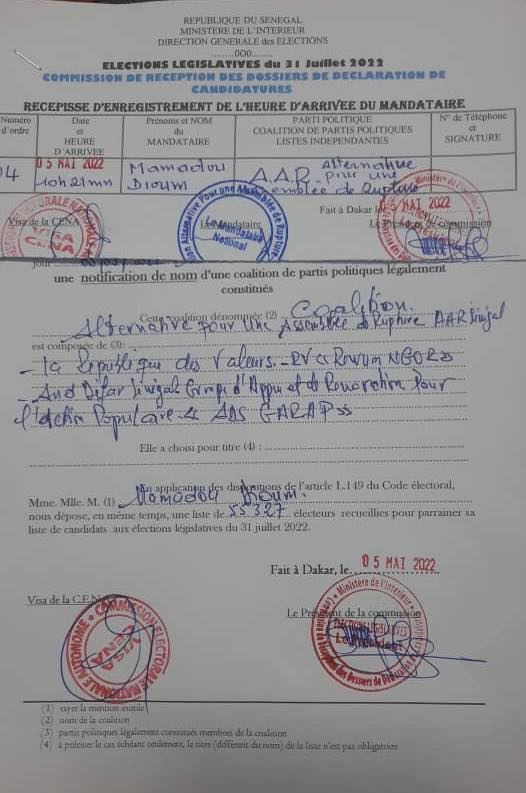 REPUBLIQUE DU SENEGAL
MINISTERE DE L'INTERIEUR
DIRECTION GENERALE des ELECTIONS
........0O0........
ELECTIONS LEGISLATIVES du 31 Juillet 2022
COMMISSION DE RECEPTION DES DOSSIERS DE DECLARATION DE
CANDIDATURES
RECEPISSE D'ENREGISTREMENT DE L'HEURE D'ARRIVEE DU MANDATAIRE
Numéro d'ordre
Date et HEURE D'ARRIVEE
Prénoms et NOM du MANDATAIRE
PARTI POLITIQUE COALITION DE PARTIS POLITIQUES LISTES INDEPENDANTES
N° de Téléphone et SIGNATURE
04
05 MAI 2022
10h21mn
Mamadou Dioum
A.A.R. Alternative pour une Assemblée de Rupture
Visa de la CENA
Le Mandataire
Fait à Dakar le 05 MAI 2022
Le Président de la commission
VISA CENA
Coalition Alternative Pour une Assemblée de Rupture
Le Mandataire National
jour
une notification de nom d'une coalition de partis politiques légalement
constitués
Cette coalition dénommée (2) Coalition
Alternative pour Une Assemblée de Rupture AAR Sénégal
est composée de (3):
- La République des Valeurs - RV
- And Défar Sénégal Groupe d'Appui et de Rénovation Pour
l'Action Populaire « ADS GARAP »
Elle a choisi pour titre (4) :
En application des dispositions de l'article L.149 du Code électoral,
Mme. Mlle. M. (1) Mamadou Dioum
nous dépose, en même temps, une liste de 55327 électeurs recueillies pour parrainer sa
liste de candidats aux élections législatives du 31 juillet 2022.
Fait à Dakar, le 05 MAI 2022
Visa de la C.E.N.A
Le Président de la commission
COMMISSION ELECTORALE NATIONALE AUTONOME
VISA CENA
Ministère de l'Intérieur
ELECTIONS LEGISLATIVES
Le Président
Commission de Réception des Dossiers de Déclaration de Candidatures
(1) rayer la mention inutile
(2) nom de la coalition
(3) partis politiques légalement constitués membres de la coalition
(4) à préciser le cas échéant seulement, le titre (différent du nom) de la liste n'est pas obligatoire